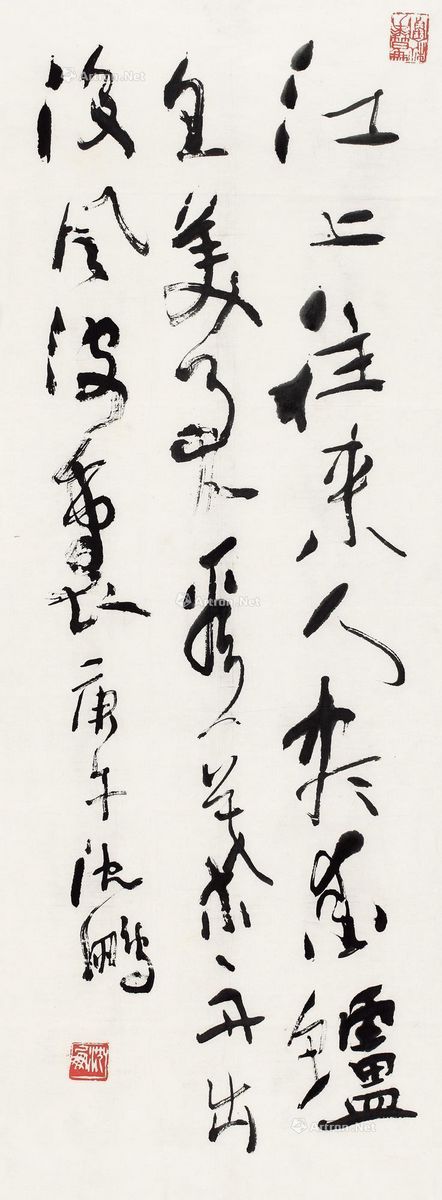 江上往来人愛鱸
鱼美君看一葉舟出
没风波裏庚午沈鹏
Artron.Net
Artron.Net
Artron.Net